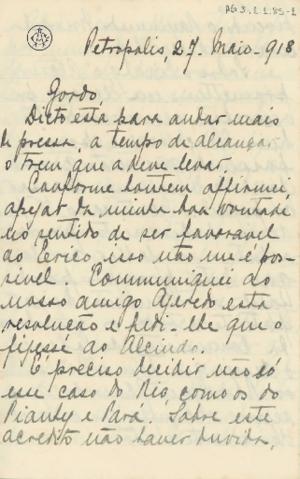 PG 3.2.1.85-1
Petropolis, 27. Maio. 918
Gordo,
Dieto está para andar mais
de pressa, a tempo de alcançar
o trem que a deve levar.
Conforme hontem affirmei,
apezar da minha boa vontade
no sentido de ser favoravel
ao Cerico, isso não me é pos-
sivel. Communiquei ao
nosso amigo Azeredo esta
resolução e pedi-lhe que o
fizesse ao Alcindo.
É preciso decidir não só
esse caso do Rio, como os do
Piauhy e Pará. Sobre este
acredito não haver duvida,